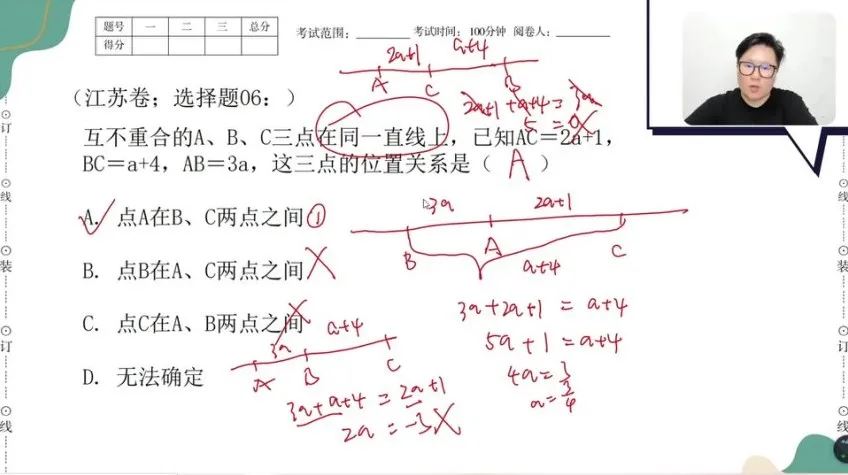 题号 一 二 三 总分
得分
考试范围：________ 考试时间：100分钟 阅卷人：________
2a+1 a+4
A C B
（江苏卷；选择题06：）
2a+1+a+4=3a
5=0
互不重合的A、B、C三点在同一直线上，已知AC＝2a+1，
BC＝a+4，AB＝3a，这三点的位置关系是（ A ）
3a 2a+1
A. 点A在B、C两点之间①
B A C
a+4
B. 点B在A、C两点之间
3a+2a+1=a+4
C. 点C在A、B两点之间
3a a+4
5a+1=a+4
A B C
D. 无法确定
4a=3
3a+a+4=2a+1
a=3/4
2a=-3
订
线
装
订
线
订
线
装
订
线